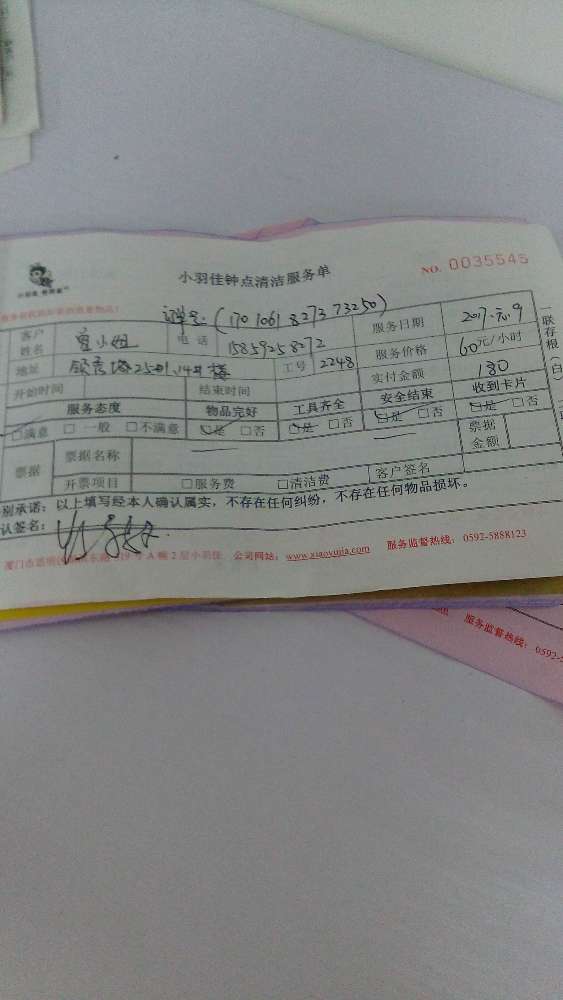 小羽佳钟点清洁服务单
NO. 0035545
订单号:(170 1061 8273 73250)
客户姓名 曾小姐 电话 15859258272 服务日期 2017.元.9
地址 2501 14# 楼 工号 2248 服务价格 60元/小时
开始时间 结束时间 实付金额 180
服务态度 物品完好 工具齐全 安全结束 收到卡片
□满意 □一般 □不满意 □是 □否 □是 □否 □是 □否 □是 □否
票据 票据名称 票据金额
开票项目 □服务费 □清洁费 客户签名
别承诺:以上填写经本人确认属实,不存在任何纠纷,不存在任何物品损坏。
认签名:
厦门市 2层小羽佳 公司网站:www.xiaoyujia.com 服务监督热线:0592-5888123
一联存根(白)
服务监督热线:0592-5